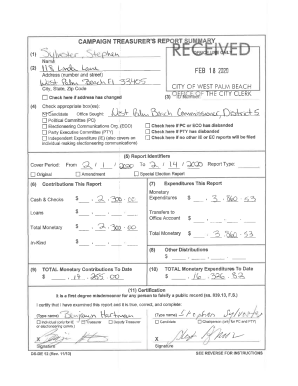 CAMPAIGN TREASURER'S REPORT SUMMARY
(1) Sylvester, Stephen
Name
RECEIVED
(2)
Address (number and street)
FEB 18 2020
West Palm Beach, FL 33405
City, State, Zip Code
CITY OF WEST PALM BEACH
OFFICE OF THE CITY CLERK
Check here if address has changed
(3)
(4) Check appropriate box(es):
Candidate Office Sought: West Palm Beach Commissioner, District 5
Political Committee (PC)
Electioneering Communications Org. (ECO)
Check here if PC or ECO has disbanded
Party Executive Committee (PTY)
Check here if PTY has disbanded
Independent Expenditure (IE) (also covers an
individual making electioneering communications)
Check here if no other IE or EC reports will be filed
(5) Report Identifiers
Cover Period: From 2 / 1 / 2020 To 2 / 14 / 2020 Report Type:
Original
Amendment
Special Election Report
(6) Contributions This Report
(7) Expenditures This Report
Cash & Checks $ 2,300.00
Monetary
Expenditures $ 3,360.53
Loans $
Transfers to
Office Account $
Total Monetary $ 2,300.00
Total Monetary $ 3,360.53
In-Kind $
(8) Other Distributions
$
(9) TOTAL Monetary Contributions To Date
(10) TOTAL Monetary Expenditures To Date
(11) Certification
It is a first degree misdemeanor for any person to falsify a public record (ss. 839.13, F.S.)
I certify that I have examined this report and it is true, correct, and complete:
(Type name) Benjamin Hartman
(Type name) Stephen Sylvester
Individual (only for IE
or electioneering comm.)
Treasurer
Deputy Treasurer
Candidate
Chairperson (only for PC and PTY)
X
X
Signature
Signature
DS-DE 12 (Rev. 11/13)
SEE REVERSE FOR INSTRUCTIONS